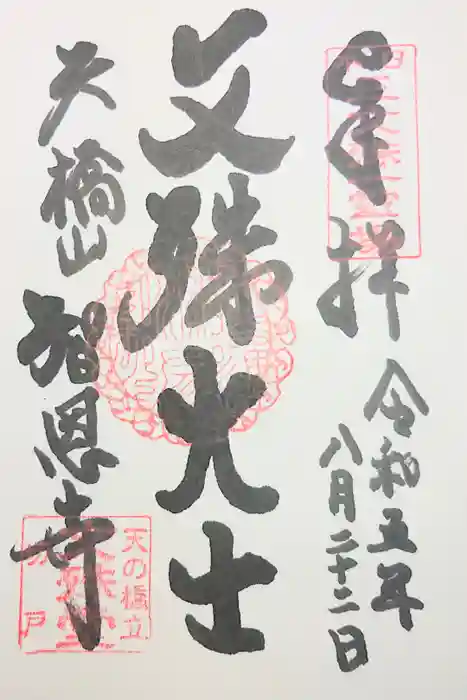 奉拝
令和五年
八月二十二日
文殊大士
天橋山
智恩寺
天の橋立
文殊堂